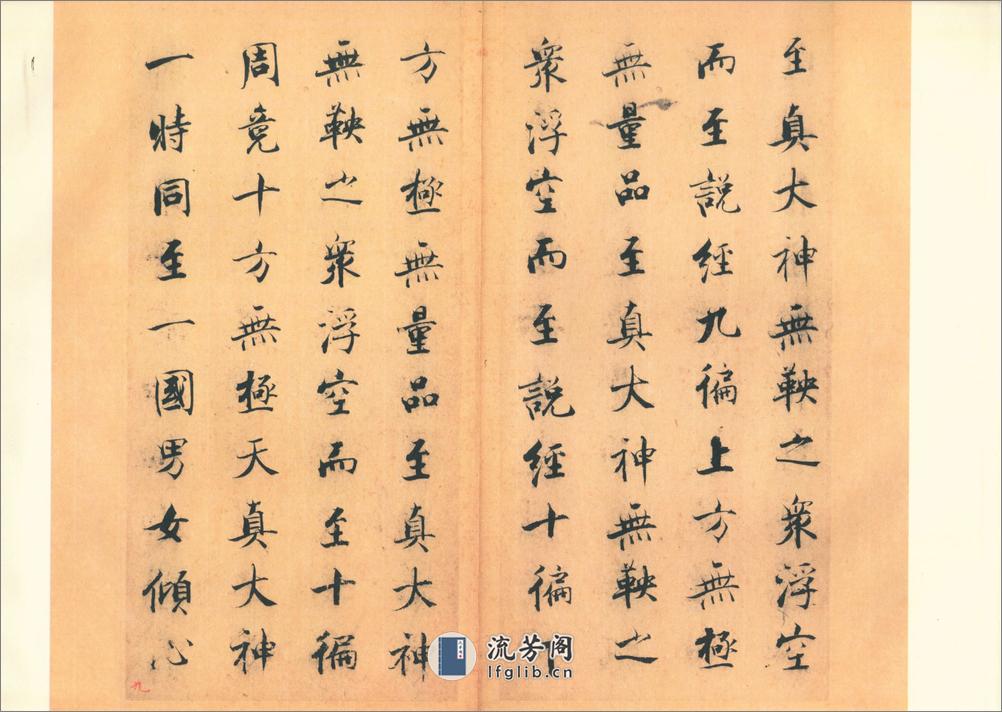 至真大神無鞅之衆浮空
而至說經九徧上方無極
無量品至真大神無鞅之
衆浮空而至說經十徧下
方無極無量品至真大神
無鞅之衆浮空而至十徧
周竟十方無極天真大神
一時同至一國男女傾心
九
流芳阁
lfglib.cn